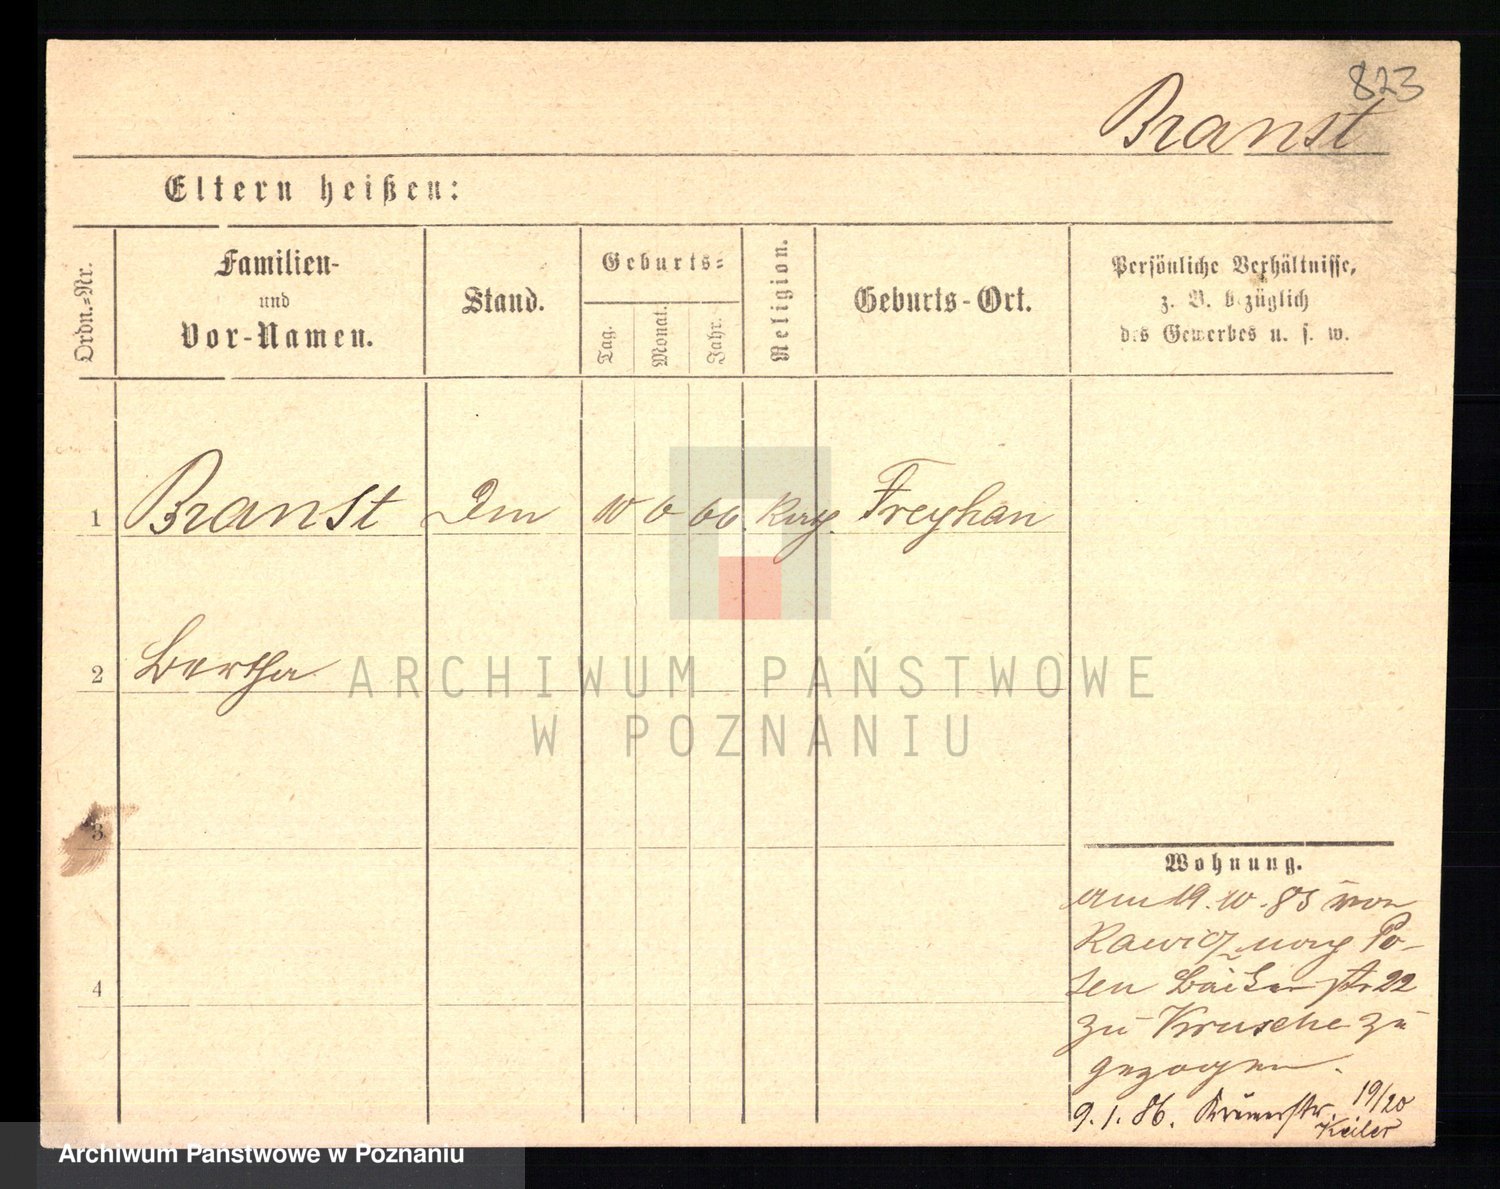 823
Branst
Eltern heißen:
Ordn.-Nr.
Familien-
und
Vor-Namen.
Stand.
Geburts-
Tag.
Monat.
Jahr.
Religion.
Geburts-Ort.
Persönliche Verhältnisse,
z. B. bezüglich
des Gewerbes u. s. w.
1 Branst 10 6 66. Freyhan
2 Bertha
3
4
Wohnung.
am 19. 10. 85 von
Rawicz nach Po-
sen Bäckerstr 22
zu Krusche zu
gezogen.
9. 1. 86. Krämerstr. 19/20
Keiler
ARCHIWUM PAŃSTWOWE
W POZNANIU
Archiwum Państwowe w Poznaniu